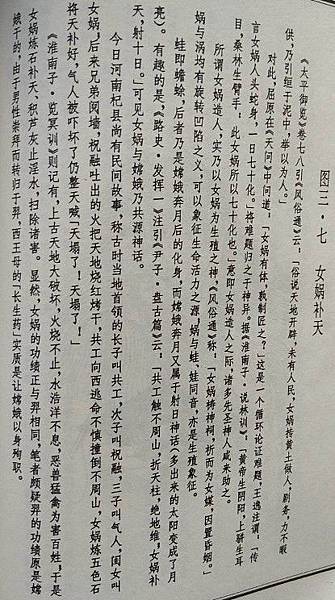 图二七 女娲补天
《太平御览》卷七八引《风俗通》云：“俗说天地开辟，未有人民，女娲抟黄土做人，剧务，力不暇
供，乃引絙于泥中，举以为人。”
对此，屈原在《天问》中问道：“女娲有体，孰制匠之？”这是一个循环论证难题，王逸注谓：“传
言女娲人头蛇身，一日七十化。”将难题归之于神异。据《淮南子·说林训》，“黄帝生阴阳，上骈生耳
目，桑林生臂手：此女娲所以七十化也。”意即女娲造人之际，诸多先圣神人咸来助之。
所谓女娲造人，实乃以女娲为生殖之神《风俗通》称：“女娲祷神祠，祈而为女媒，因置昏姻。”
娲与涡均有旋转凹陷之义，可以象征生命活力之源，娲与蛙、娃同音，亦是生殖象征。
蛙即蟾蜍，后者乃是嫦娥奔月后的化身，而嫦娥奔月又属于射日神话（多出来的太阳变成了月
亮）。有趣的是，《路史·发挥一》注引《尹子·盘古篇》云：“共工触不周山，折天柱，绝地维，女娲补
天，射十日。”可见女娲与嫦娥乃共源神话。
今日河南杞县尚有民间故事，称古时当地首领的长子叫共工，次子叫祝融，三子叫气人，闺女叫
女娲，后来兄弟阋墙，祝融吐出的火把天地烧红烤干，共工向西逃命不慎撞倒不周山，女娲炼五色石
将天补好，气人被吓坏了仍整天喊「天塌了！天塌了！」
《淮南子·览冥训》则记有，上古天地大破坏，火烧不止，水浩洋不息，恶兽猛禽为害百姓，于是
女娲炼石补天、积芦灰止淫水，扫除诸害。显然，女娲的功绩正与羿相同，笔者颇疑羿的功绩原是嫦
娥干的，由于男性崇拜而转归于羿，西王母的「长生药」实质是让嫦娥以身殉职。